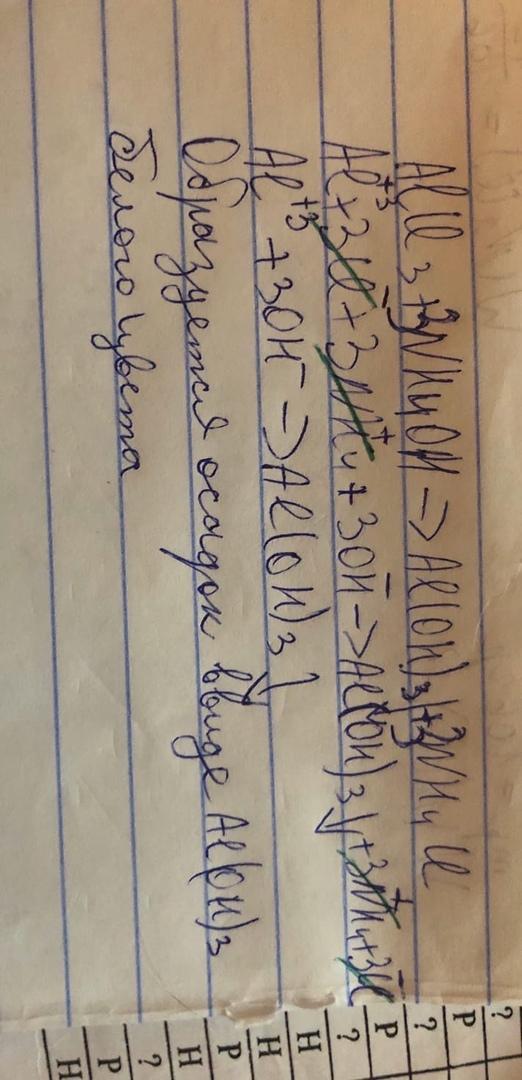 AlCl3+3NH4OH → Al(OH)3↓+3NH4Cl
Al⁺³+3Cl⁻+3NH4⁺+3OH⁻→Al(OH)3↓+3NH4⁺+3Cl⁻
Al⁺³+3OH⁻→Al(OH)3↓
Образуется осадок ввиде Al(OH)3
белого цвета
?
Р
?
Р
?
Н
Н
Р
Н
?
Р
Н